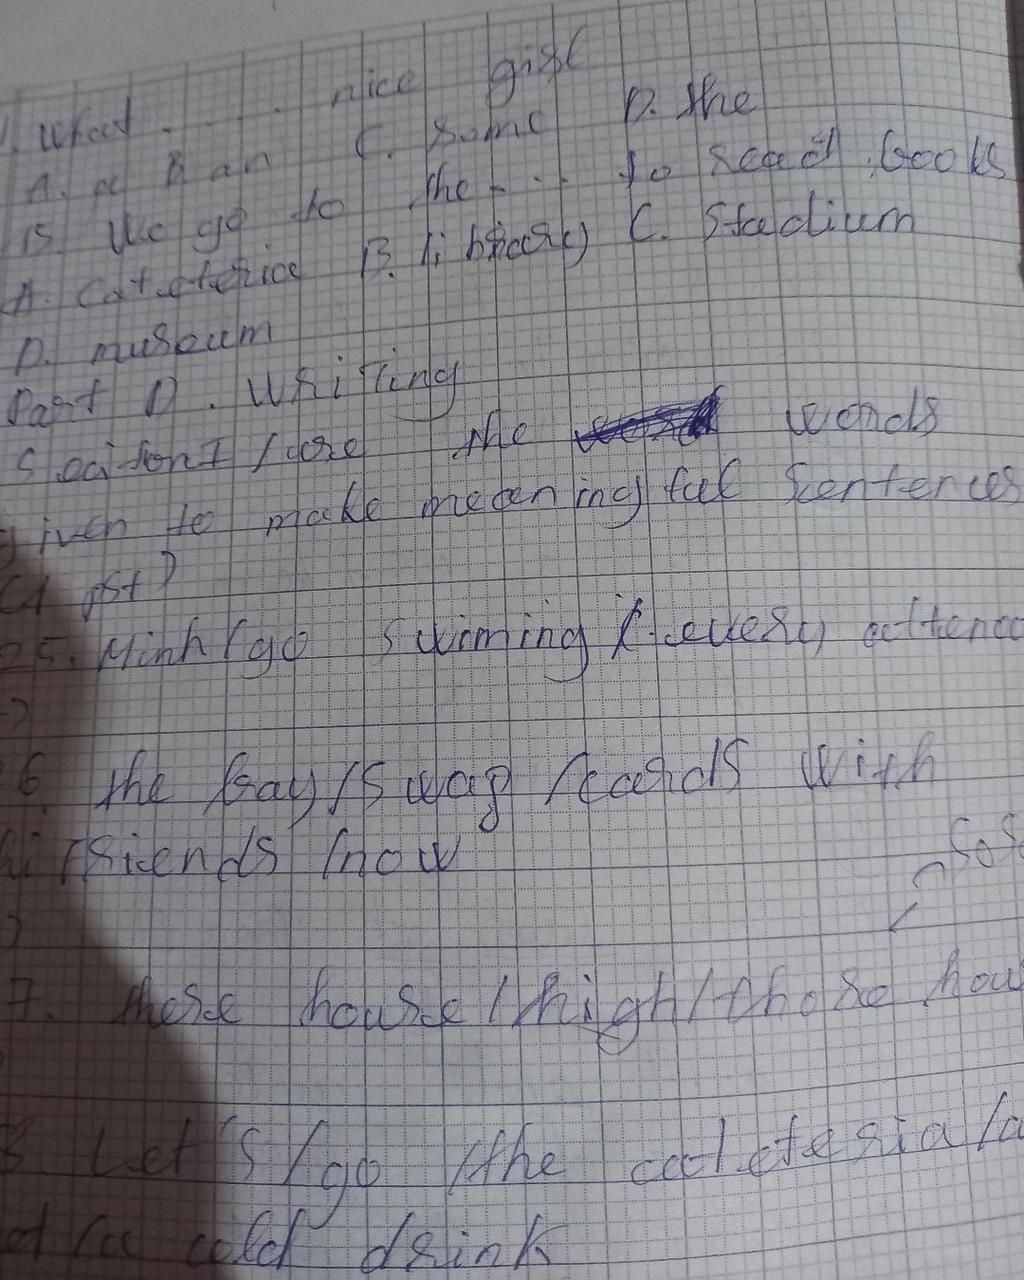 . What .... nice girl
A. a B an C. some D. the
15 We go to the ... to read books
A. B. library C. Stadium
D. museum
Part D. Writing
the words
iven to make meaningful Sentences
(1 pst)
25. Minh / go swiming / every
6. the / swap / cards with
friends / now
7. these house / high / those hou
8 Let's / go / the
a cold drink